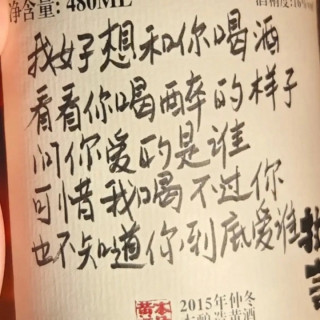 净含量: 480ML
酒精度:16%vol
我好想和你喝酒
看看你喝醉的样子
问你爱的是谁
可惜我喝不过你
也不知道你到底爱谁
2015年仲冬
本酿造黄酒